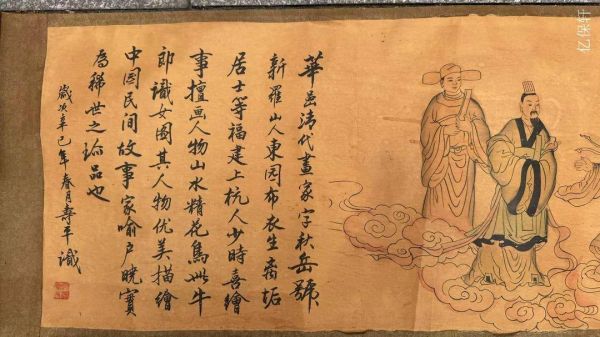 華嵒清代畫家字秋岳號
新羅山人東园布衣生离垢
居士等福建上杭人少時喜繪
事擅画人物山水精花鳥此牛
郎識女圖其人物优美描繪
中國民间故事家喻户曉實
為稀世之珎品也
歲次辛已年春月壽平識
亿保轩